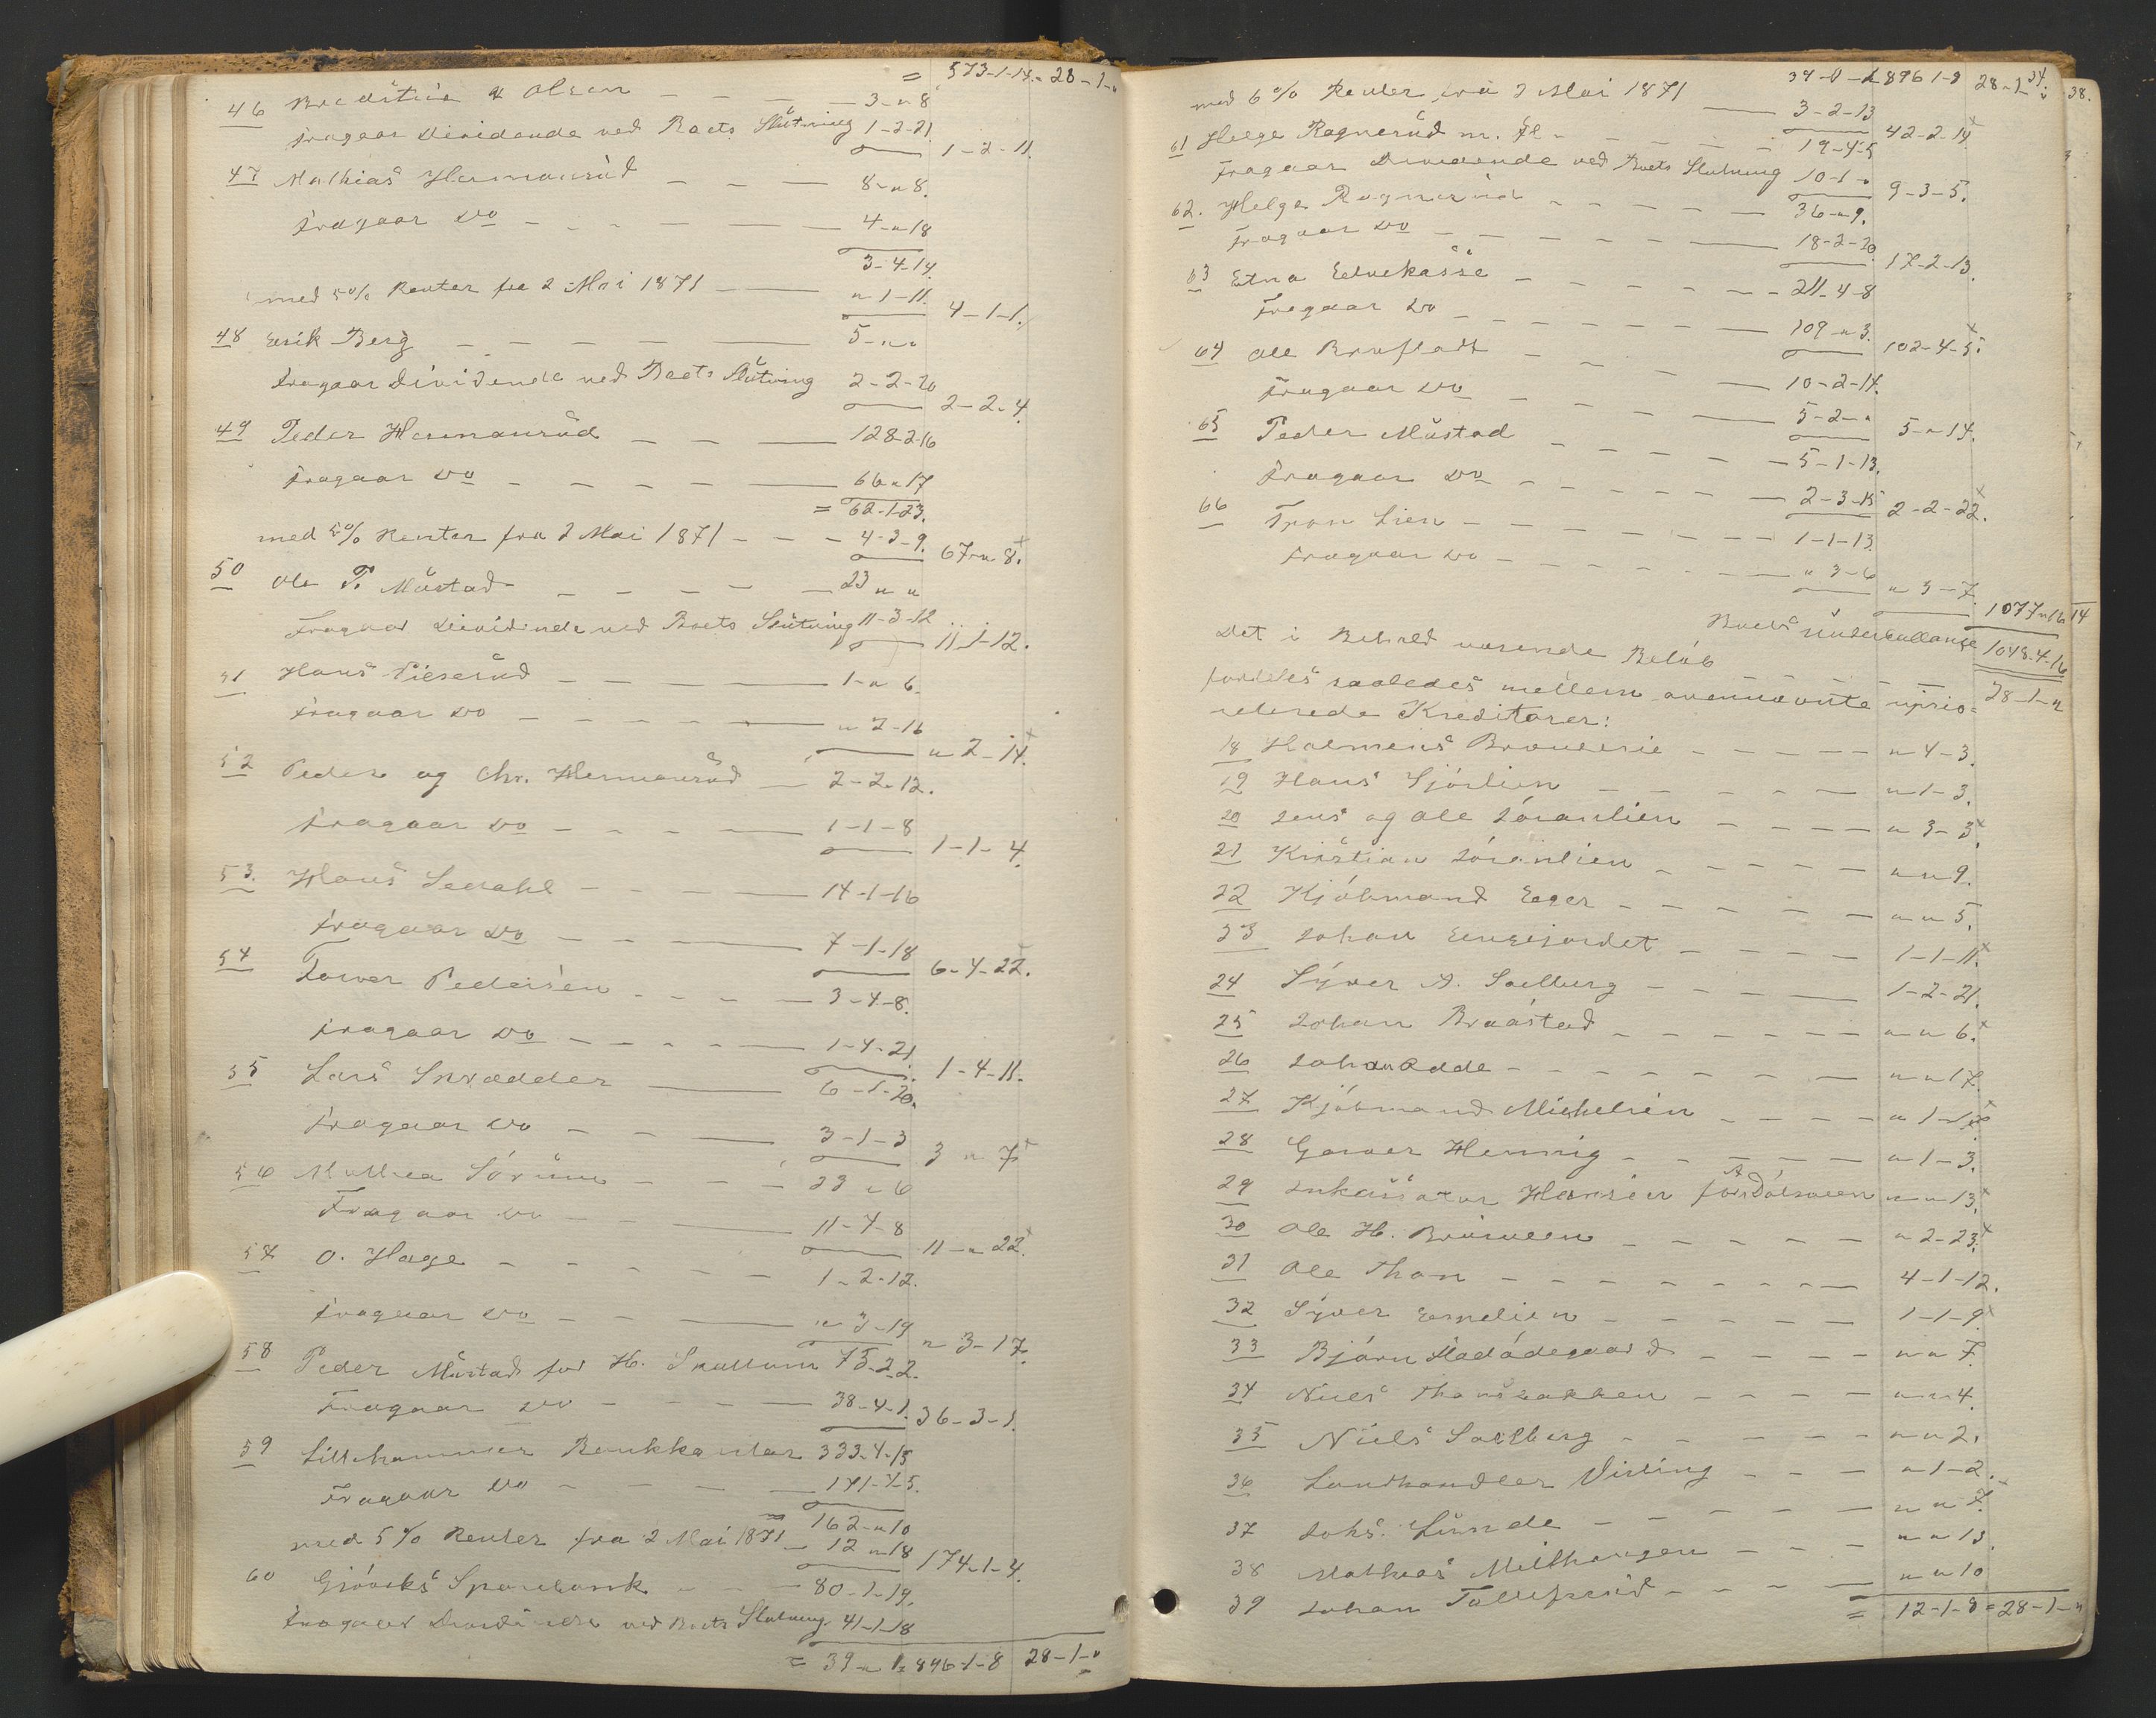 = 573-1-14. = 28-1-"
46 & Olsen - - - 3-"-8
fragaar Dividende ved Boets Slutning 1-2-21.
1-2-11.
47 Mathias Hermansrud - - - 8-"-8.
fragaar Do - - - - 4-"-18
3-4-14.
med 5% Renter fra 2 Mai 1871 - "-1-11. 4-1-1.
48 Erik Berg - - - - 5-"-"
fragaar Dividende ved Boets Slutning 2-2-20
2-2-4.
49 Peder Hermansrud - - - 128-2-16
fragaar Do - - - - 66-"-17
= 62-1-23.
med 5% Renter fra 2 Mai 1871 - - - 4-3-9. 67-"-8.
50 Ole P. Mustad - - - - 23-"-"
Fragaar Dividende ved Boets Slutning 11-3-12
11-1-12.
51 Hans - - - 1-"-6.
fragaar Do - - - - "-2-16
"-2-14.
52 Peder og Chr. Hermansrud - 2-2-12.
fragaar Do - - - - 1-1-8
1-1-4.
53. Hans - - - 14-1-16
fragaar Do - - - 7-1-18
6-4-22.
54 Pedersen - - - 3-4-8.
fragaar Do - - - - 1-4-21.
1-4-11.
55 Lars Skrædder - 6-1-20.
fragaar Do - - - 3-1-3
3-"-7
56 Mathea Sörum - - - 23-"-6
Fragaar Do - - - 11-4-8
11-"-22.
57 O. Hage - - - - 1-2-12.
fragaar Do - - - "-3-19
"-3-17.
58 Peder Mustad for H. 75-2-2.
Fragaar Do - - - - 38-4-1. 36-3-1.
59 Lillehammer Bankkontor 333-4-15
Fragaar Do - - - - 171-4-5.
162-"-10
med 5% Renter fra 2 Mai 1871 - 12-"-18 174-1-4.
60 Gjöviks Sparebank - - - 80-1-19.
fragaar Dividende ved Boets Slutning 41-1-18
= 39-"-1 = 896-1-8 28-1-"
34.
38.
39-"-1 896-1-8 28-1-"
med 6% Renter fra 2 Mai 1871 - 3-2-13
42-2-14
61 Helge Ragnerud - - - - 19-4-5
Fragaar Dividende ved Boets Slutning 10-1-"
9-3-5.
62. Helge Ragnerud - - - - 36-"-9.
Fragaar Do - - - - 18-2-20.
17-2-13.
63 Etna - - - - 211-4-8
Fragaar Do - - - - 109-"-3.
102-4-5.
64 Ole - - - - 10-2-14.
fragaar Do - - - 5-2-"
5-"-14.
65 Peder Mustad - - - - 5-1-13.
fragaar Do - - - - 2-3-15
2-2-22.
66 Tron Lien - - - - 1-1-13.
fragaar Do - - - - "-3-6
"-3-7.
1077-"-16
14
Boets Underballance 1048-4-16
Det i Behold værende Belöb - - - 28-1-"
fordeles saaledes mellem ovennævnte uprio-
riterede Kreditorer:
18 Holmens Brænderie - - - - "-4-3.
19 Hans Sjörlien - - - - "-1-3.
20 Jens og Ole - - - - "-3-3.
21 Kristian - - - - "-"-9.
22 Kjöbmand Eger - - - - "-"-5.
23 Johan Eengejordet - - - - 1-1-11.
24 Syver A. Soelberg - - - - 1-2-21.
25 Johan Braastad - - - - "-"-6.
26 Johan Odde - - - - "-"-17.
27 Kjöbmand Mickelsen - - - - "-1-17
28 Garver Hennig - - - - "-1-3.
29 Inkassator Hansen for A "-"-13.
30 Ole H. - - - - "-2-23.
31 Ole Thon - - - - 4-1-12.
32 Syver - - - - 1-1-9.
33 Björn - - - - "-"-7.
34 Niels Thonsbakken - - - - "-"-4.
35 Niels Soelberg - - - - "-"-2.
36 Landhandler - - - "-1-2.
37 Johs. Lunde - - - - "-"-7.
38 Mathias - - - "-"-13.
39 Johan Tollefsrud - - - - "-"-10
= 12-1-8 = 28-1-"